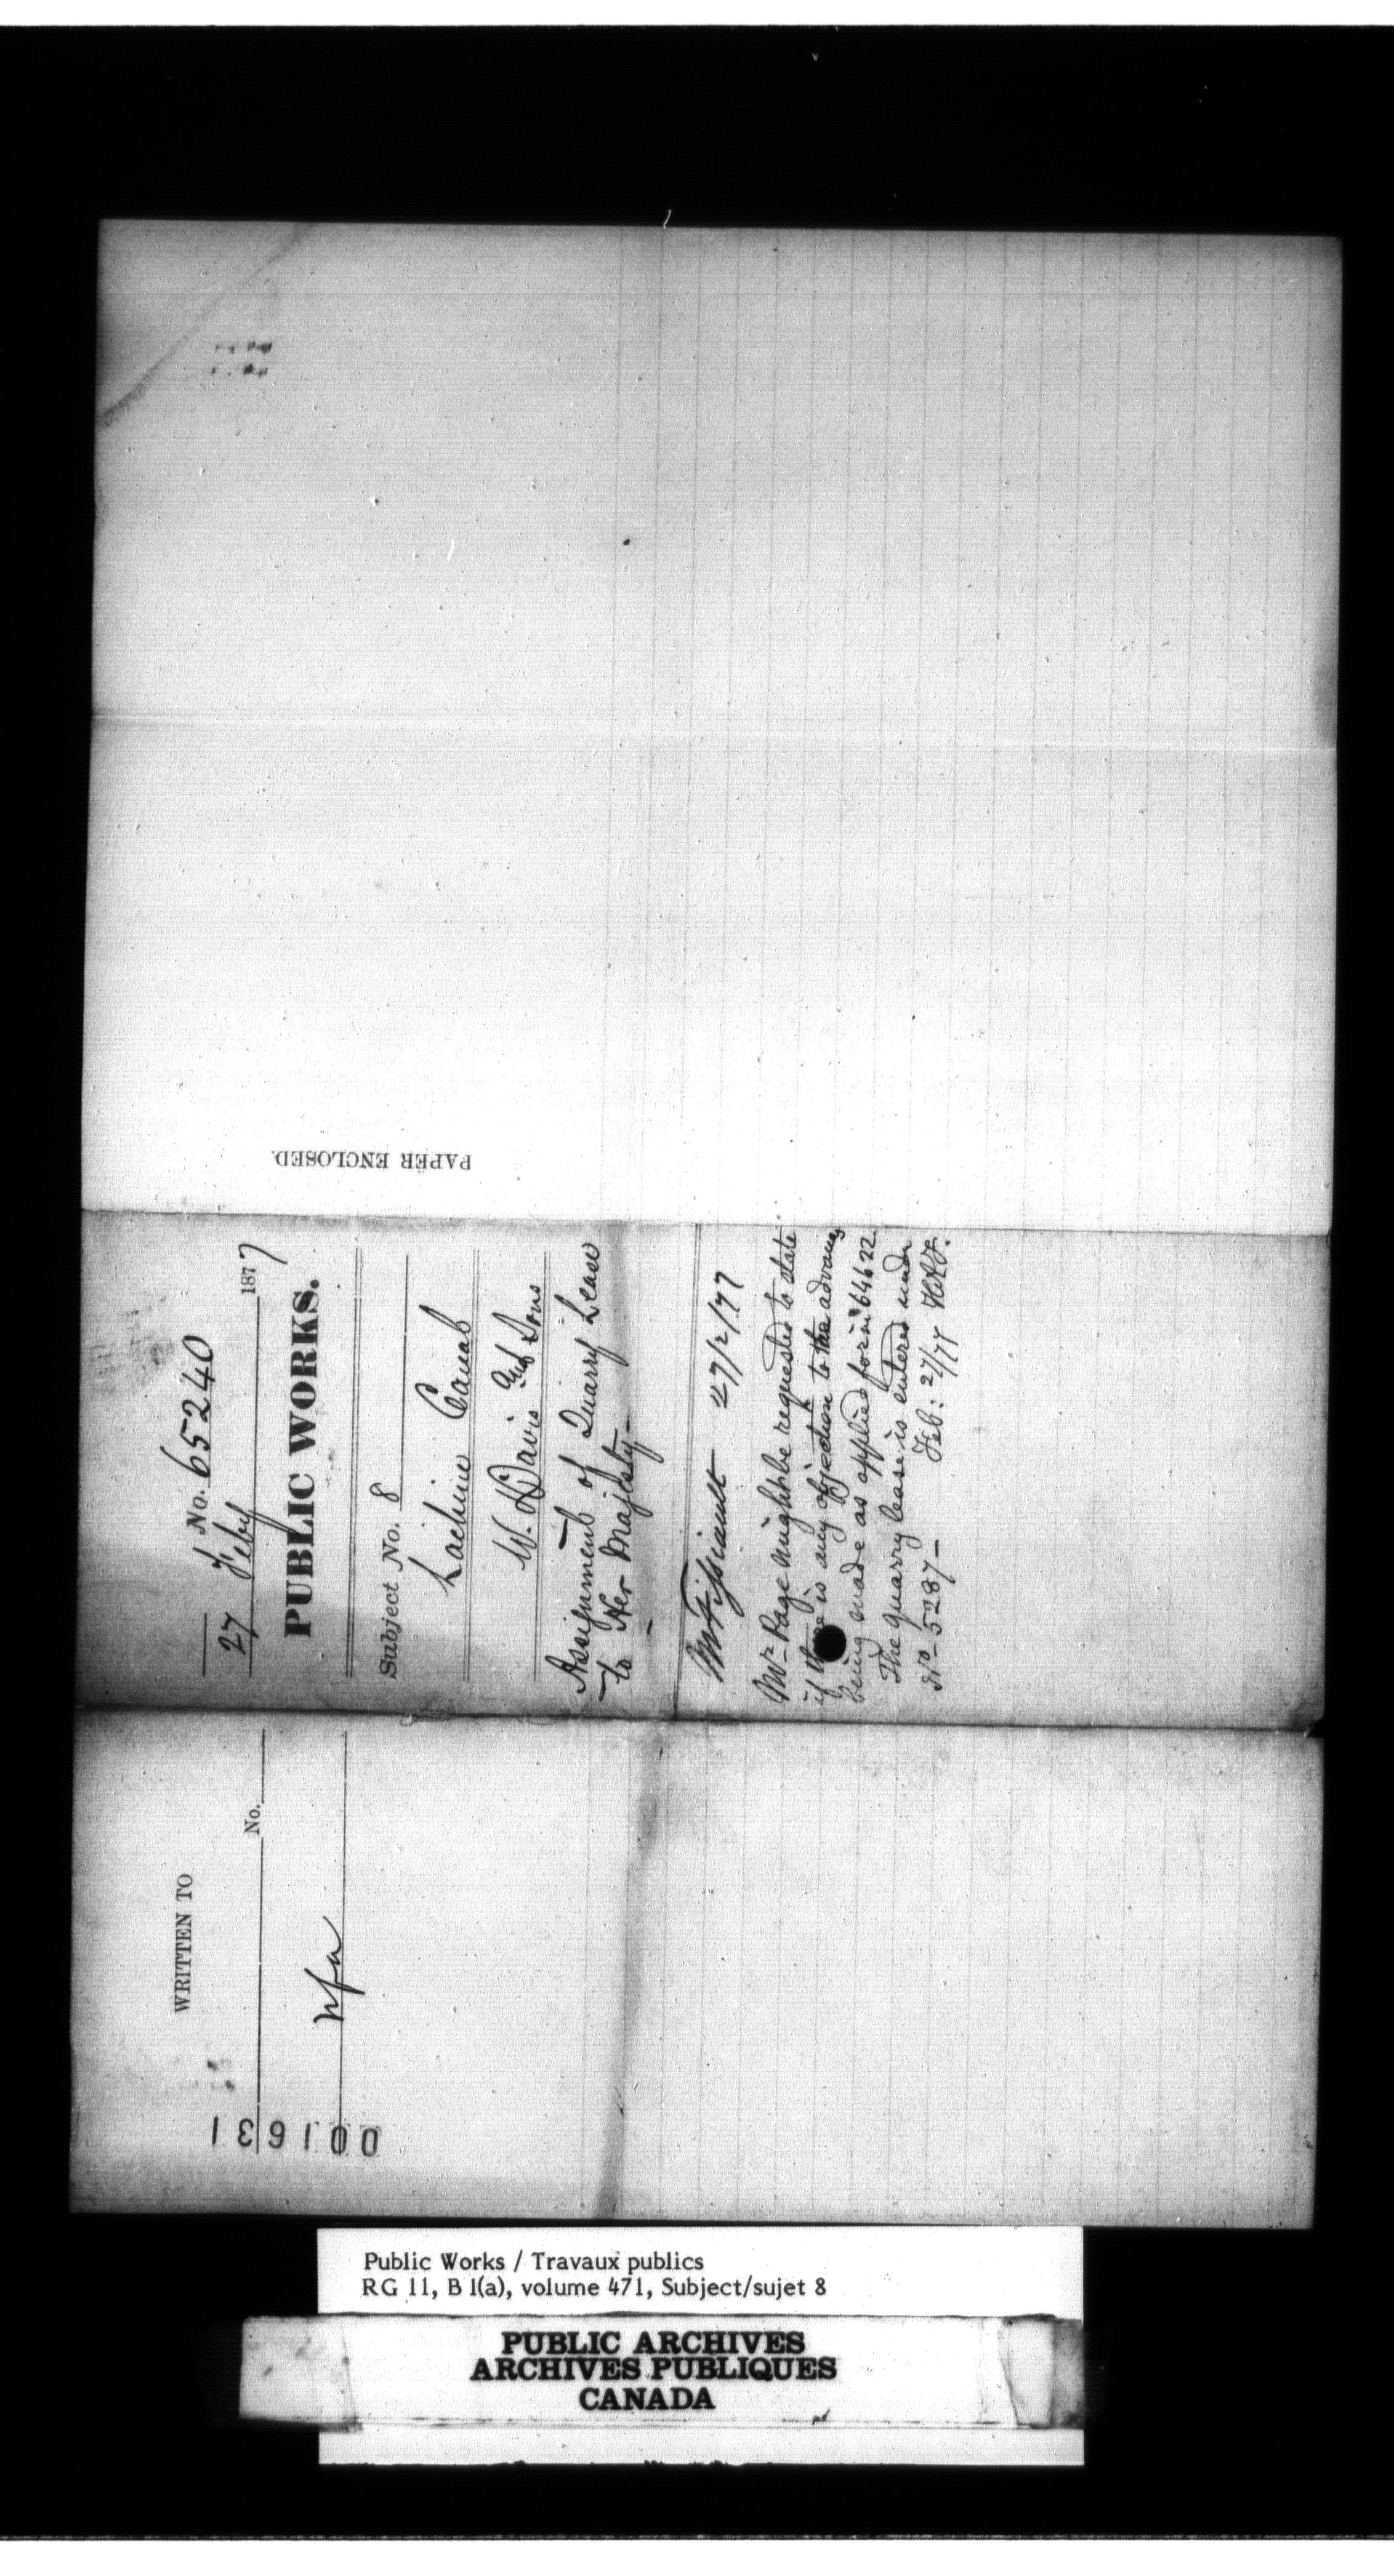 PAPER ENCLOSED.
No. 65240
27 Feby 1877
PUBLIC WORKS.
Subject No. 8
Lachine Canal
W. Davis and Sons
Assignment of Quarry Lease
to Her Majesty
27/2/77
Mr Page might be requested to state
if there is any objection to the advance
being made as applied for in 64622.
The quarry lease is entered under
No 5287 — Feb: 27/77
WRITTEN TO
No.
nfa
001631
Public Works / Travaux publics
RG 11, B 1(a), volume 471, Subject/sujet 8
PUBLIC ARCHIVES
ARCHIVES PUBLIQUES
CANADA